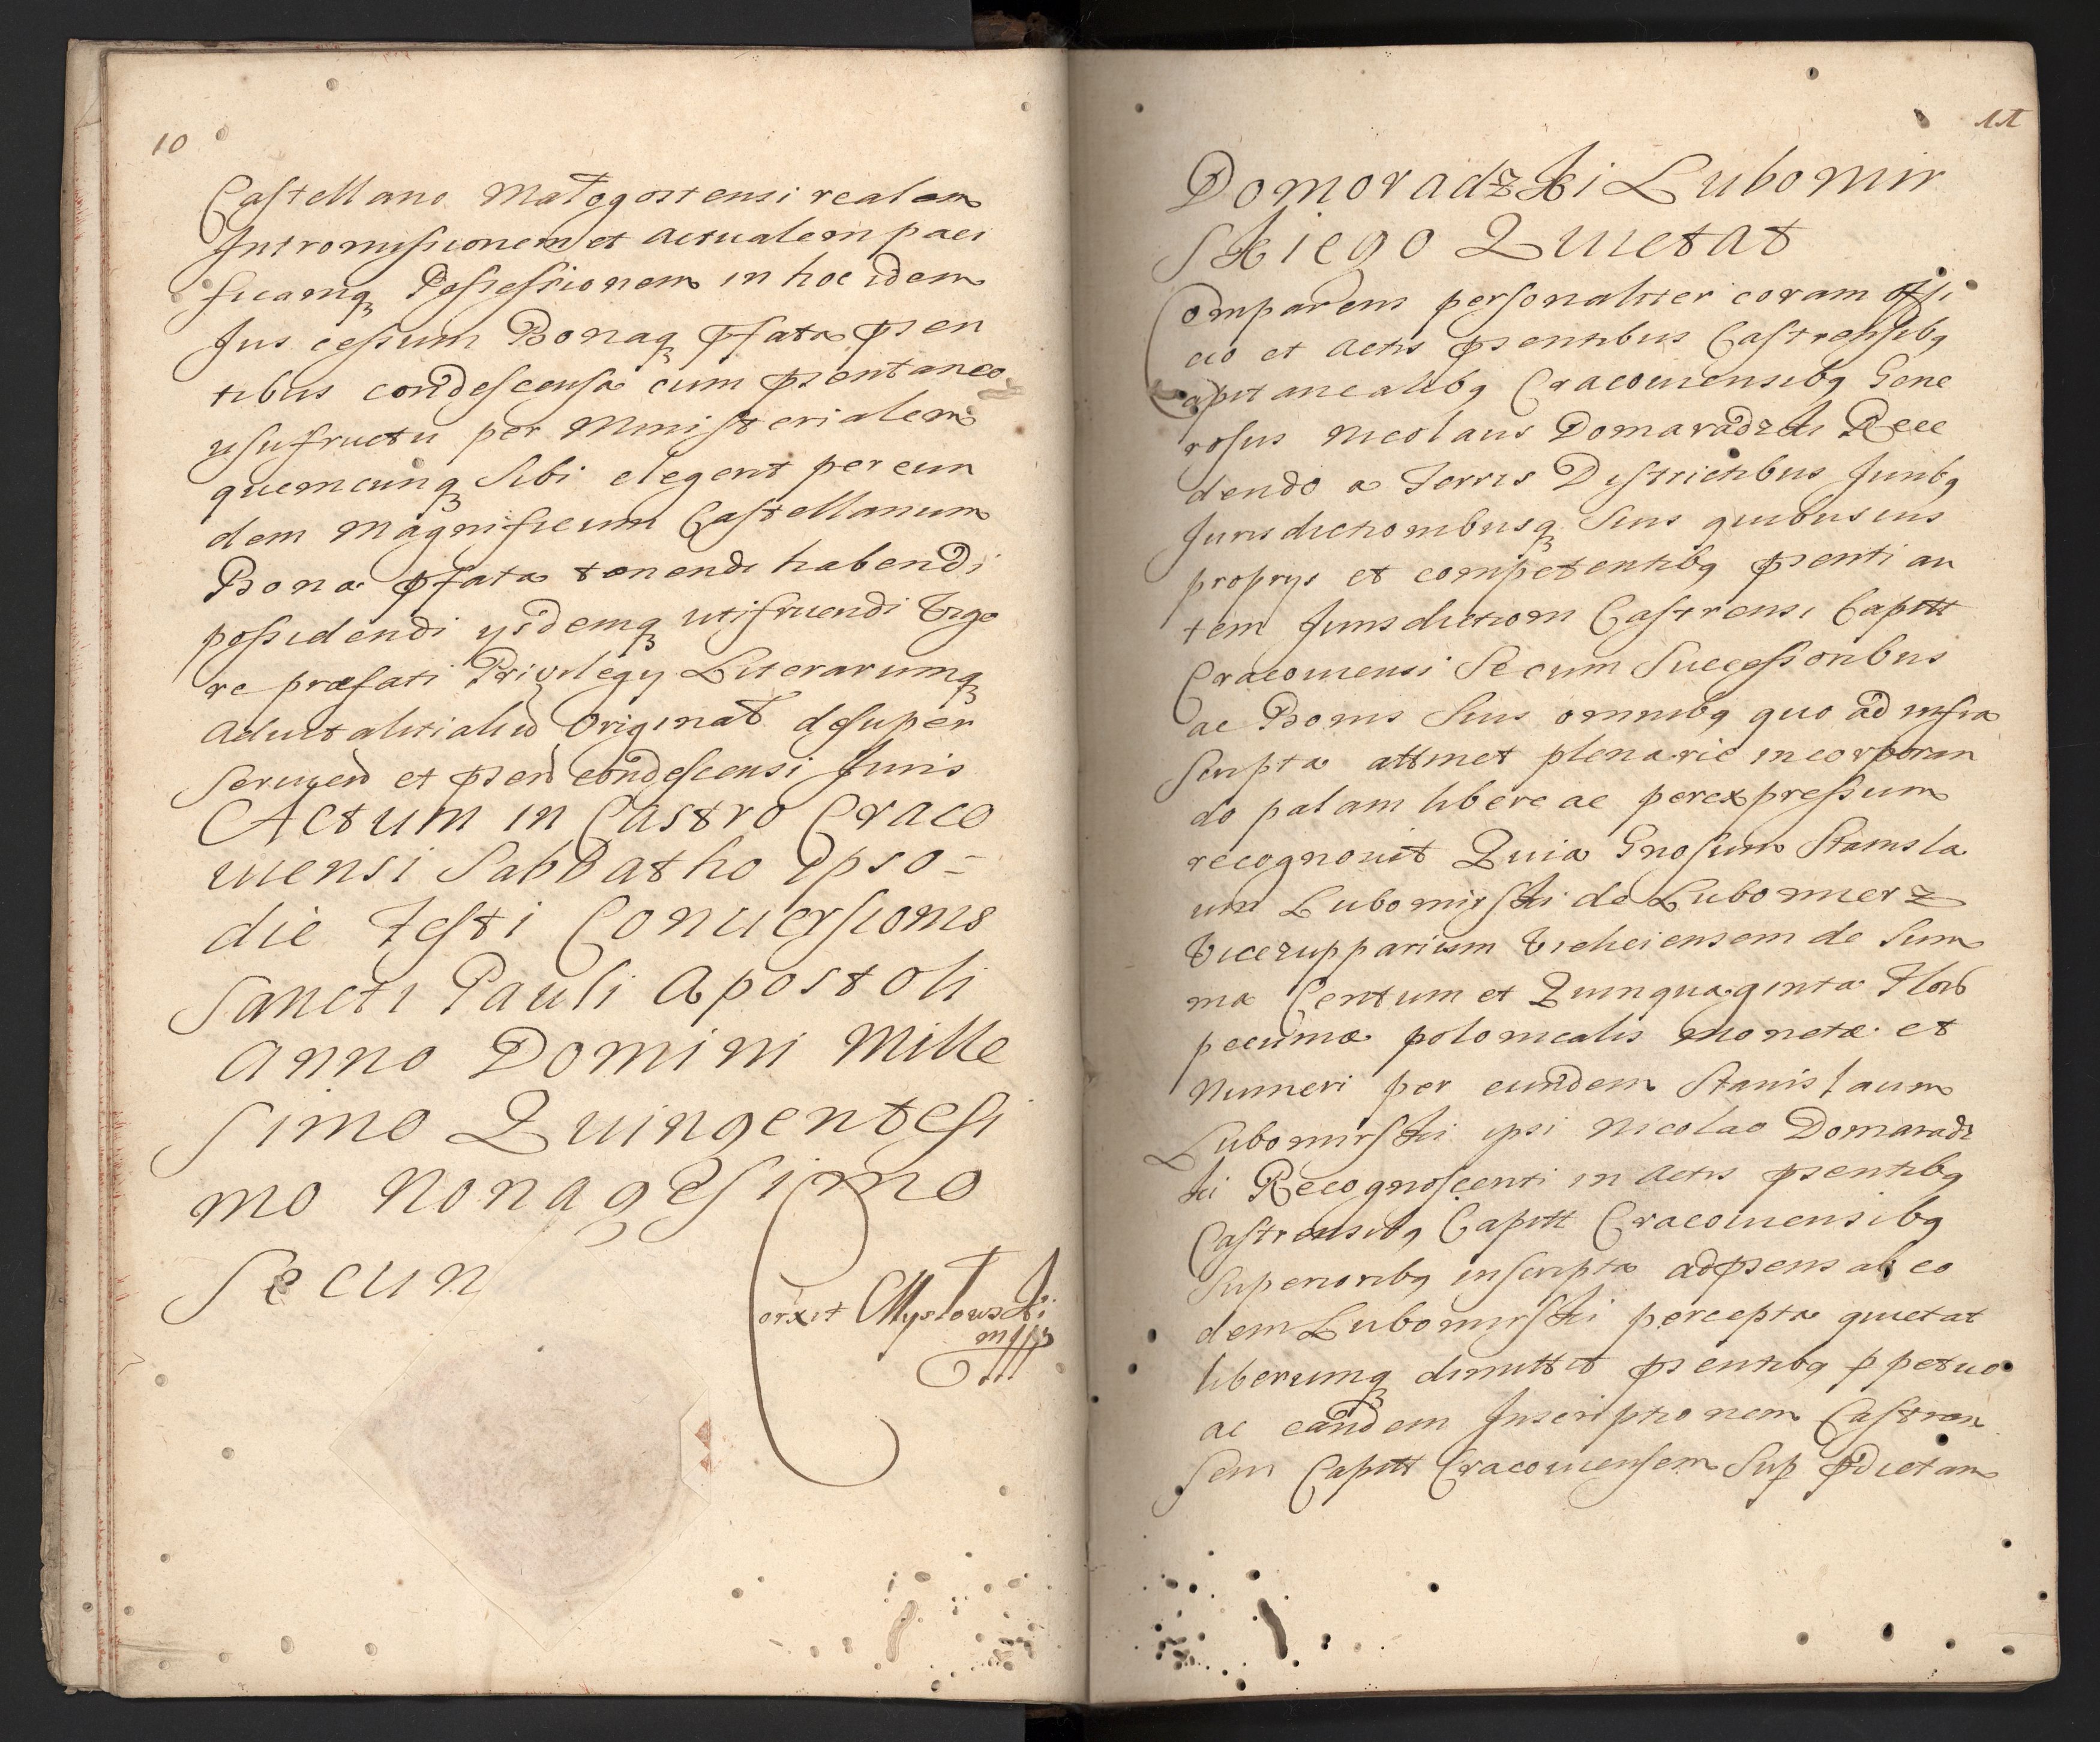 10
Castellano Małogostensi realem
Intromissionem et actualem paci
ficamq Possessionem in hoc idem
Jus cessum Bonaq pfata psen
tibus condescensa cum psentaneo
usufructu per Ministerialem
quemcunq Sibi elegerit per eun
dem Magnificum Castellanum
Bona pfata tenendi habendi
possidendi ysdemq utifruendi Vigo
re præfati Privilegy Literarumq
Aduitalitialiu Originał desuper
Seruyen et psen condescensi Juris
Actum in Castro Craco
uiensi Sabbatho Ipso-
die Festi Conuersionis
Sancti Pauli Apostoli
Anno Domini Mille
simo Quingentesi
mo Nonagesimo
Secun
orxit Mysłowski
mpp
11
Domoradzki Lubomir
skiego Quietat
Comparens personaliter coram offi
cio et Actis psentibus Castrensibq
Capitanealibq Cracouiensibq Gene
rosus Nicolaus Domaradzki Rece
dendo a Terris Districtibus Juribq
Jurisdictionibusq Suis quibusuis
proprys et competentibq psenti au
tem Jurisdiction Castrensi Capitt
Cracouiensi Se cum Successoribus
ac Bonis Suis omnibq quo ad infra
scripta attinet plenarie incorporan
do palam libere ac per expressum
recognouit Quia Gnosum Stanisla
um Lubomirski de Lubomierz
Vicezupparium Vieliciensem de Sum
ma Centum et Quinquaginta Flor
pecuniæ polonicalis monetæ et
Numeri per eundem Stanisłaum
Lubomirski ipsi Nicolao Domaradz
ki Recognoscenti in Actis psentibq
Castrensibq Capitt Cracouiensibq
Superioribq inscripta adpsens ab eo
dem Lubomirski percepta quietat
liberumq dimittit psentibq ppetuo
ac eandem Inscriptionem Castren
sem Capitt Cracouiensem Sup pdictam